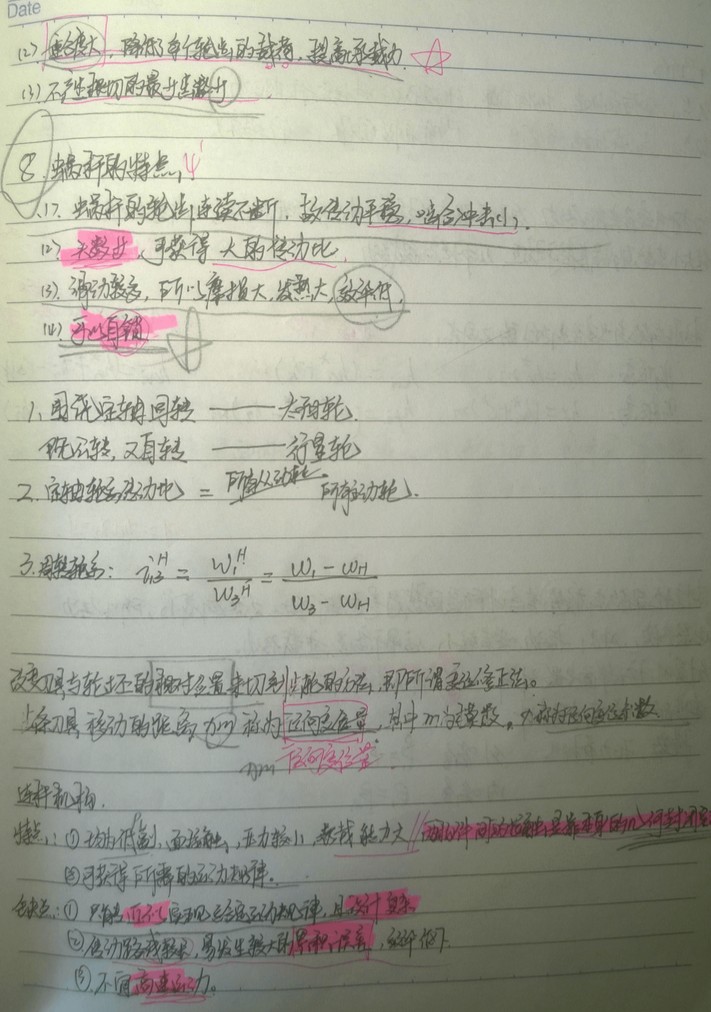 Date
(2) 重合度大,降低了每个轮齿的载荷,提高承载力
(3) 不产生根切的最少齿数少
8. 蜗杆的特点:
(1). 蜗杆的轮齿连续不断,故传动平稳,啮合冲击小.
(2) 头数少,可获得大的传动比.
(3). 滑动 ,所以磨损大,发热大,效率低.
(4) 可以自锁
1. 定轴回转 —— 太阳轮.
既公转,又自转 —— 行星轮
2. 定轴轮系传动比 = 所有从动轮 所有主动轮.
3. 周转轮系: i₁₃ᴴ = ω₁ᴴ / ω₃ᴴ = (ω₁ - ωH) / (ω₃ - ωH)
改变刀具与轮坯的相对位置来切制齿轮的方法,即所谓变位修正法。
刀具移动的距离 xm 称为径向变位量,其中m为模数, x称为径向变位系数
xm 径向变位量.
连杆机构.
特点:① 均为低副,面接触,压力较小,承载能力大 // 两构件间的接触是靠本身的几何封闭
②可获得所需的运动规律.
缺点:① 只能近似实现给定运动规律,且设计复杂
② 传动路线较长,易发生较大的累积误差,效率低.
③. 不宜高速运动。